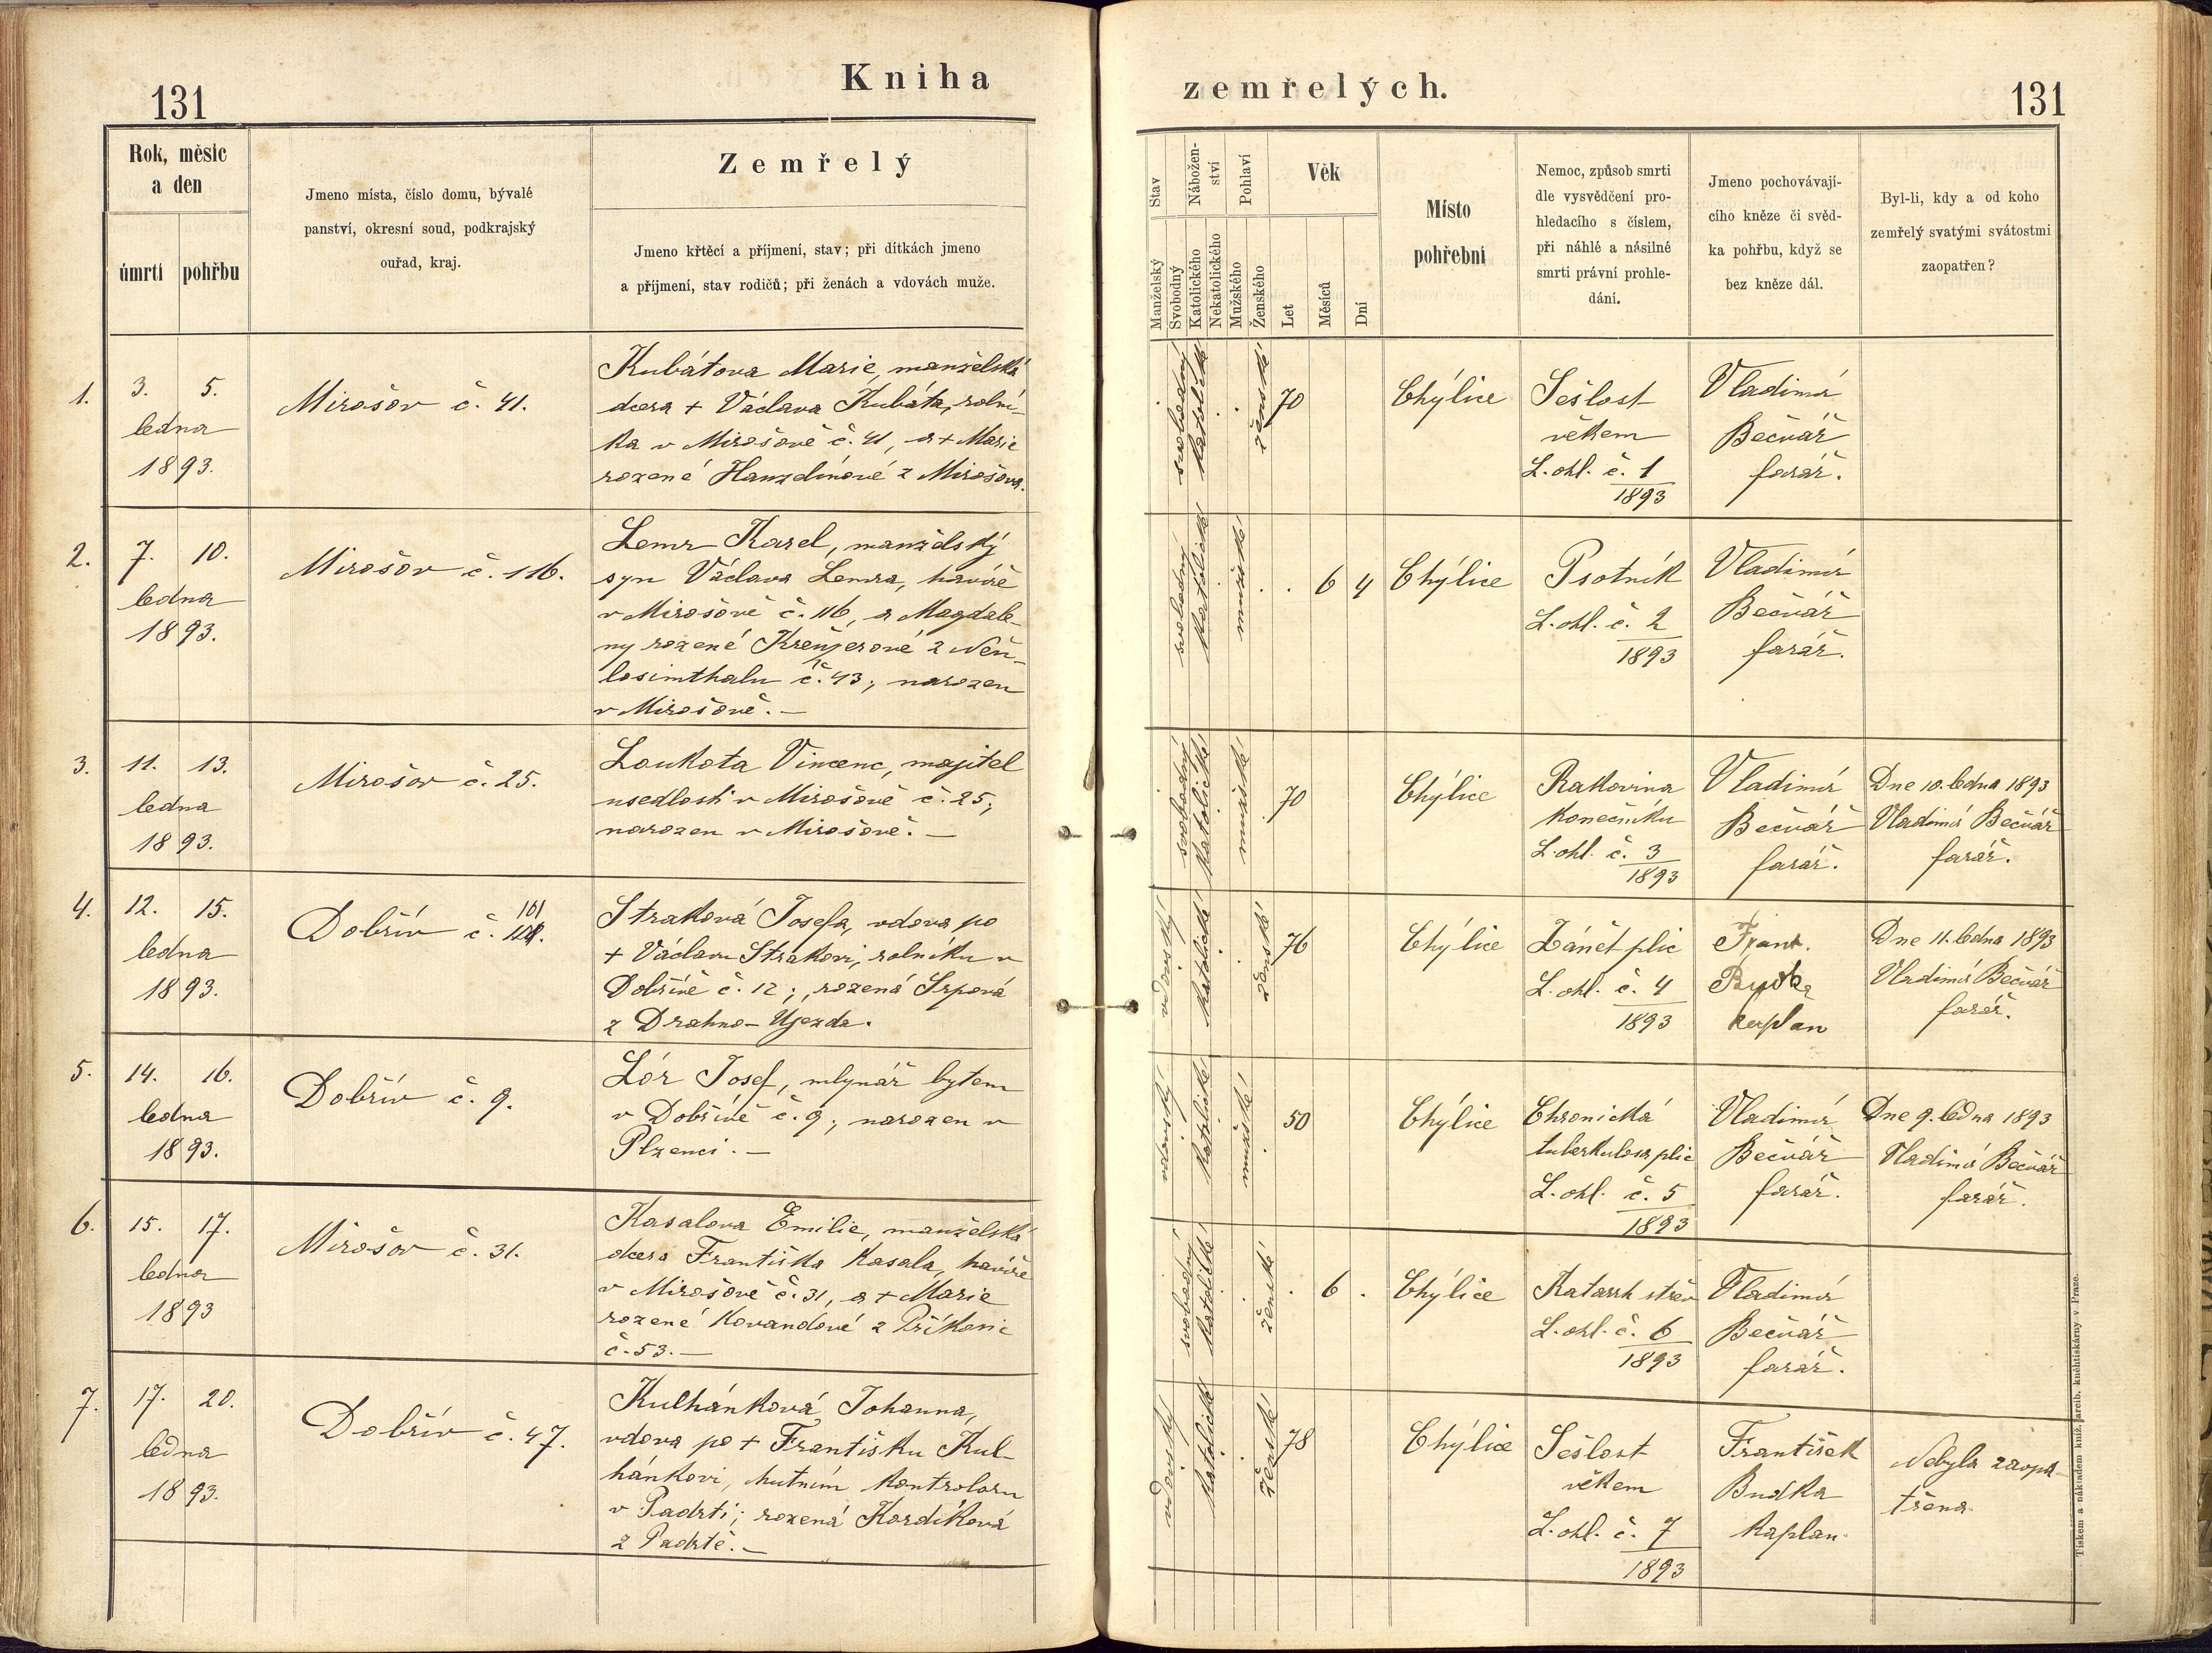 131
Kniha
zemřelých.
131
Rok, měsíc
a den
úmrtí
pohřbu
Jmeno místa, číslo domu, bývalé
panství, okresní soud, podkrajský
ouřad, kraj.
Zemřelý
Jmeno křtěcí a příjmení, stav; při dítkách jmeno
a příjmení, stav rodičů; při ženách a vdovách muže.
Stav
Manželský
Svobodný
Nábožen-
ství
Katolického
Nekatolického
Pohlaví
Mužského
Ženského
Věk
Let
Měsíců
Dní
Místo
pohřební
Nemoc, způsob smrti
dle vysvědčení pro-
hledacího s číslem,
při náhlé a násilné
smrti právní prohle-
dání.
Jmeno pochovávají-
cího kněze či svěd-
ka pohřbu, když se
bez kněze dál.
Byl-li, kdy a od koho
zemřelý svatými svátostmi
zaopatřen?
1.
3. 5.
ledna
1893.
Mirošov č. 41.
Kubátova Marie, manželská
dcera + Václava Kubáta, rolní-
ka v Mirošově č. 41, a + Marie
rozené Hanzdinové z Mirošova.
svobodný
katolické
ženské
70
Chýlice
Sešlost
věkem
L. ohl. č. 1
1893
Vladimír
Bečvář
farář.
2.
7. 10.
ledna
1893.
Mirošov č. 116.
Lemr Karel, manželský
syn Václava Lemra, havíře
v Mirošově č. 116, a Magdale-
ny rozené z Neu-
losimthalu č. 43; narozen
v Mirošově. —
svobodný
katolické
mužské
. 6 4
Chýlice
Psotník
L. ohl. č. 2
1893
Vladimír
Bečvář
farář.
3.
11. 13.
ledna
1893.
Mirošov č. 25.
Loukota Vincenc, majitel
usedlosti v Mirošově č. 25;
narozen v Mirošově. —
svobodný
katolické
mužské
70
Chýlice
Rakovina
konečníku
L. ohl. č. 3
1893
Vladimír
Bečvář
farář.
Dne 10. ledna 1893
Vladimír Bečvář
farář.
4.
12. 15.
ledna
1893.
101
Dobřív č.
Straková Josefa, vdova po
+ Václavu Strakovi, rolníku v
Dobřívě č. 12; rozená Srpová
z Drahno-Ujezda.
vdovský
katolické
ženské
76
Chýlice
Zánět plic
L. ohl. č. 4
1893
Frant.
Budka
kaplan
Dne 11. ledna 1893
Vladimír Bečvář
farář.
5.
14. 16.
ledna
1893.
Dobřív č. 9.
Lór Josef, mlynář bytem
v Dobřívě č. 9; narozen v
Plzenci. —
vdovský
katolické
mužské
50
Chýlice
Chronická
tuberkulosa plic
L. ohl. č. 5
1893
Vladimír
Bečvář
farář.
Dne 9. ledna 1893
Vladimír Bečvář
farář.
6.
15. 17.
ledna
1893
Mirošov č. 31.
Kasalova Emilie, manželská
dcera Františka Kasala, havíře
v Mirošově č. 31, a + Marie
rozené Kovandové z Příkosic
č. 53. —
svobodný
katolické
ženské
. 6 .
Chýlice
Katarrh střev
L. ohl. č. 6
1893
Vladimír
Bečvář
farář.
7.
17. 20.
ledna
1893.
Dobřív č. 47.
Kulhánková Johanna,
vdova po + Františku Kul-
hánkovi, hutním kontroloru
v Padrti; rozená Kordíková
z Padrtě. —
vdovský
katolické
ženské
78
Chýlice
Sešlost
věkem
L. ohl. č. 7
1893
František
Budka
kaplan.
Nebyla zaopa-
třena
Tiskem a nákladem kníž. arcib. knihtiskárny v Praze.